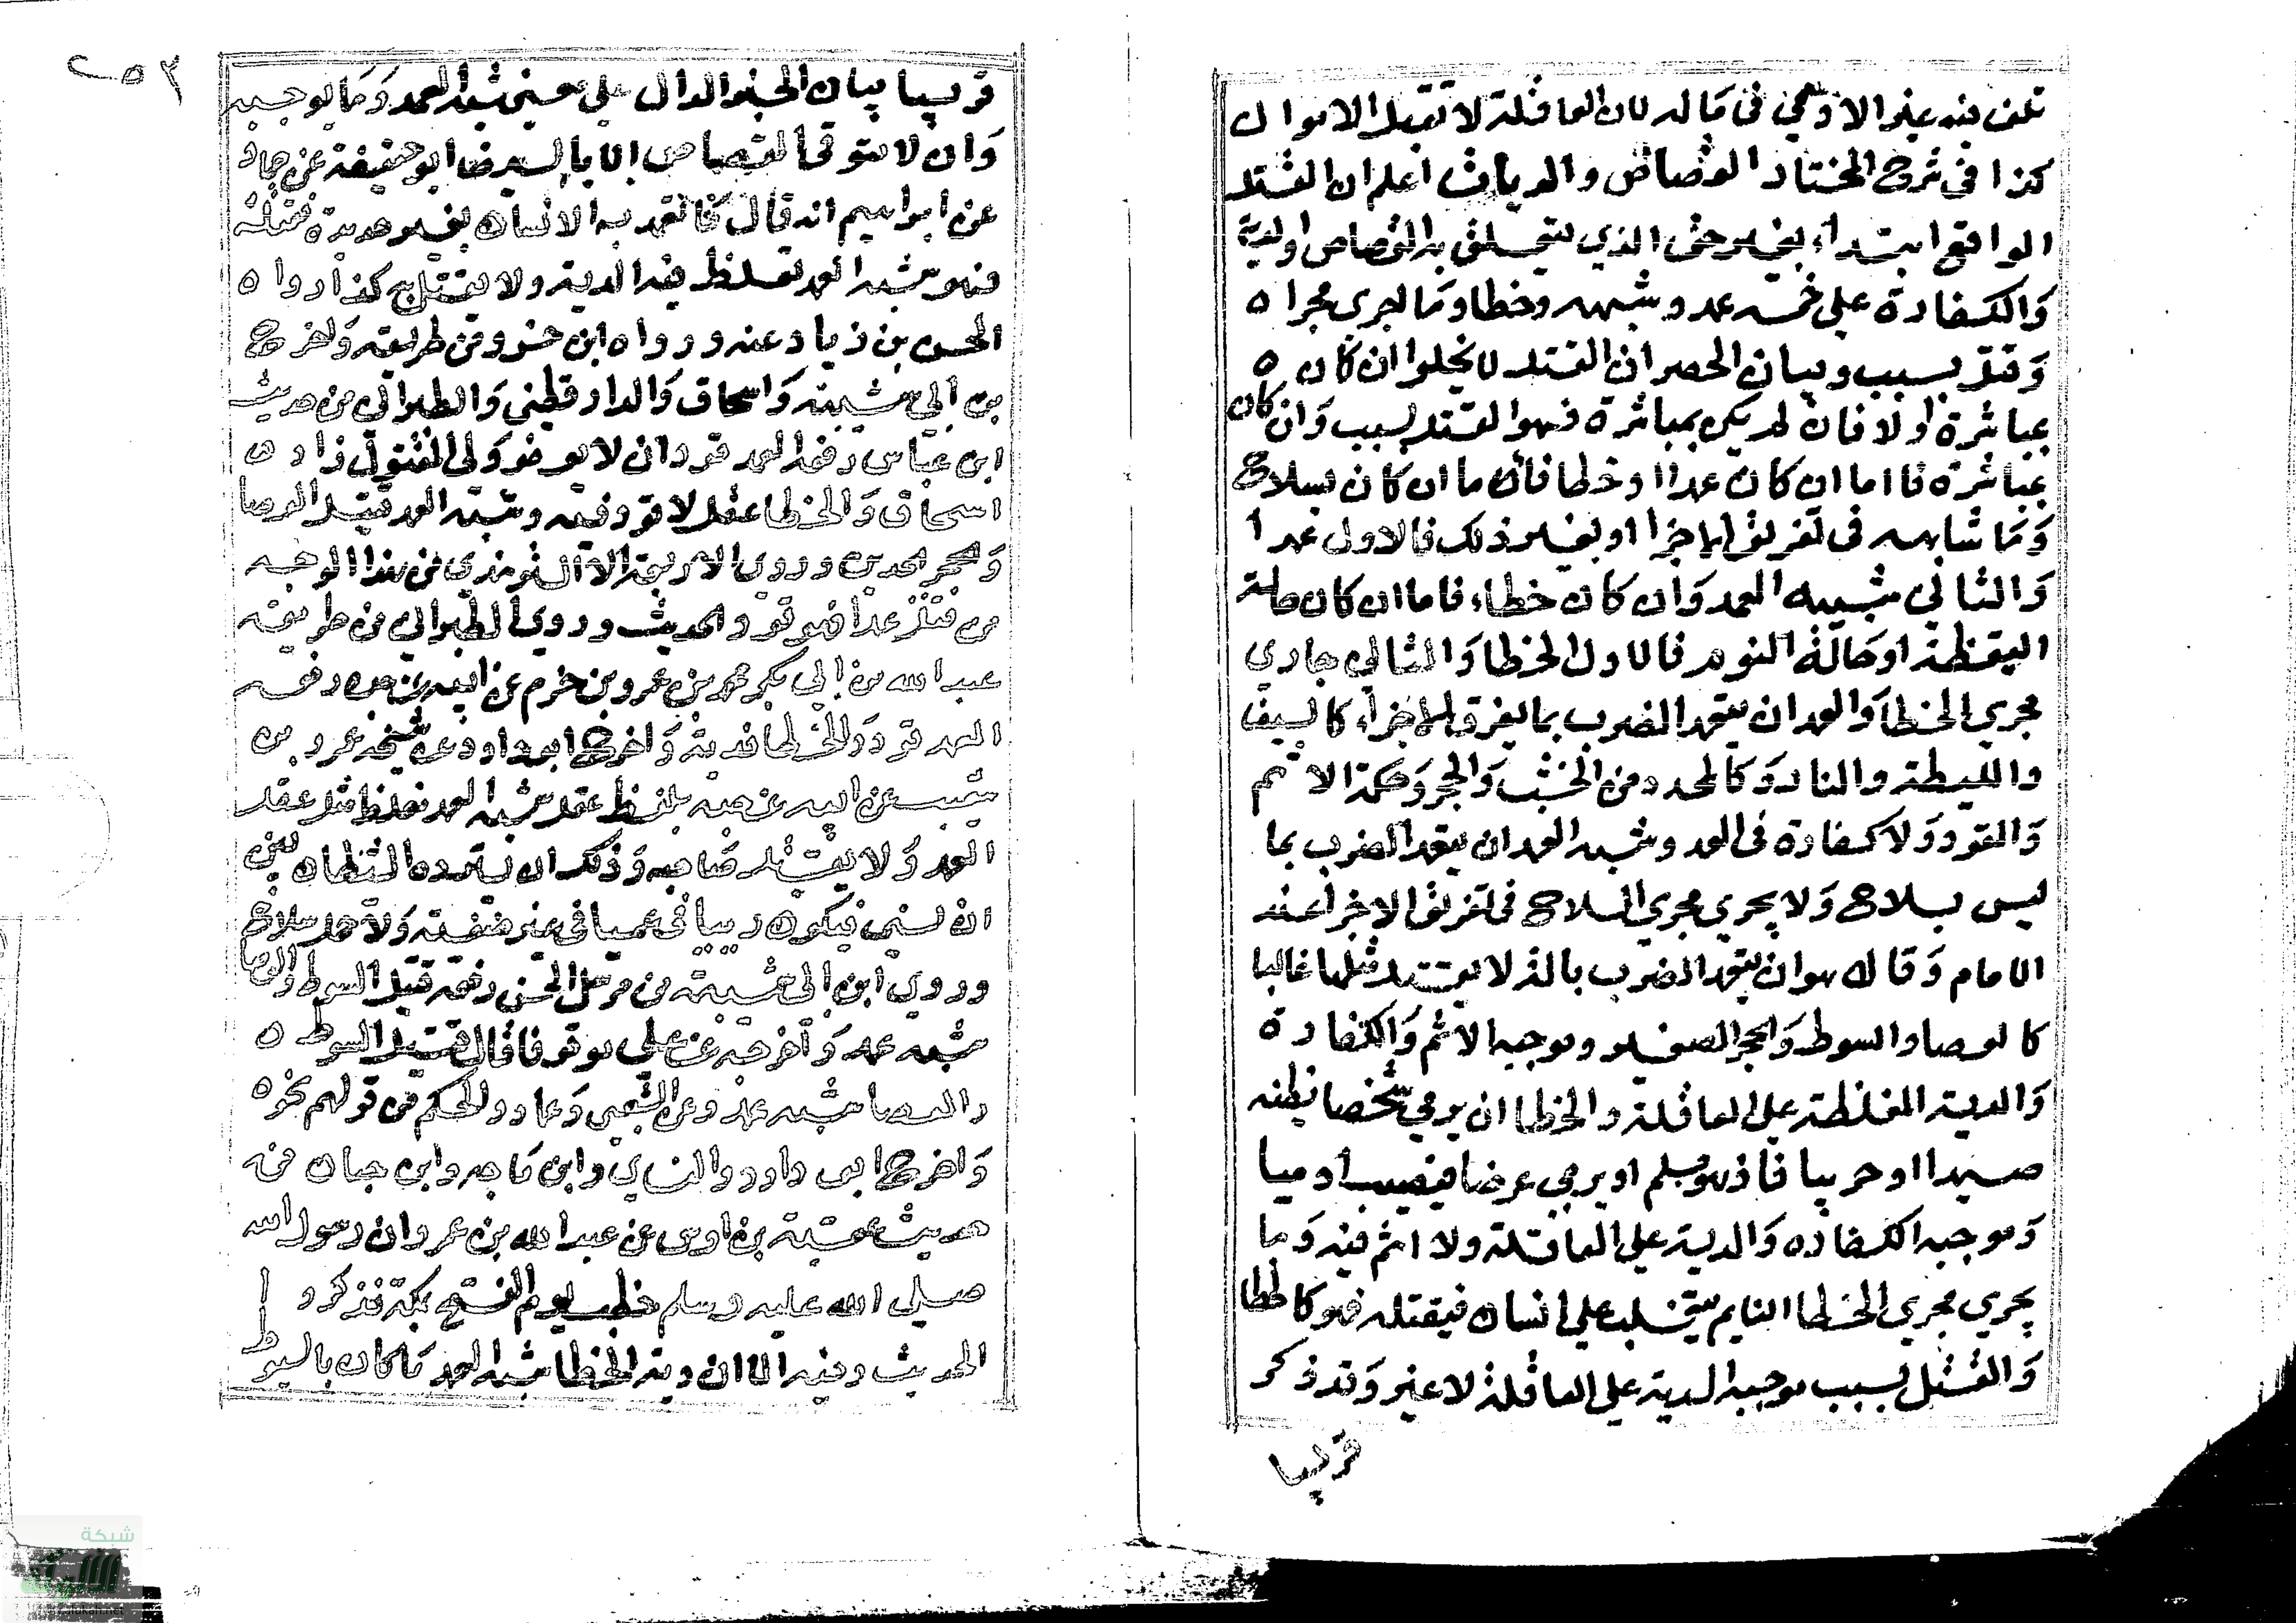 تلف فيه غير الادمي في ماله لان العاقلة لا تعقل الاموال
كذا في شرح المختار القصاص والديات اعلم ان القتل
الواقع ابتداء بغير حق الذي يتعلق به القصاص اولدية
والكفارة على خمسه عمد وشبهه وخطا وما اجرى مجراه
وقتل بسبب وبيان الحصر ان القتل لا يخلوا ان كان
بمباشرة اولا فان لم يكن بمباشرة فهو القتل بسبب وان كان
بمباشرة فاما ان كان عمدا او خطا فان ما ان كان بسلاح
وما شابهه في تفريق الاجزا او بغير ذلك فالاول عمدا
والثاني شبيه العمد وان كان خطاء فاما ان كان حالة
اليقظة او حالة النوم فالاول الخطا والثاني جاري
مجرى الخطا والعمد ان يتعمد الضرب بما يفرق الاجزاء كالسيف
والليطة والنار وكالمحدد من الخشب والحجر وحكمه الاثم
والقود ولا كفارة في العمد وشبه العمد ان يتعمد الضرب بما
ليس بسلاح ولا يجري مجرى السلاح في تفريق الاجزا عند
الامام وقالا هو ان يتعمد الضرب بالة لا يقتل مثلها غالبا
كالعصا والسوط والحجر الصغير وموجبه الاثم والكفارة
والدية المغلظة على العاقلة والخطا ان يرمي شخصا يظنه
صيدا او حربيا فاذ هو مسلم او يرمي غرضا فيصيب ادميا
وموجبه الكفاره والدية على العاقلة ولا اثم فيه وما
يجري مجرى الخطا النايم يتقلب على انسان فيقتله فهو كالخطا
والقتل بسبب موجبه الدية على العاقلة لا غير وقد ذكر
قريبا
٢٥٣
قريبا بيان الخبر الدال على معنى شبه العمد وما يوجبه
وان لا يستوفى القصاص الا بالسيف ابو حنيفة عن حماد
عن ابراهيم انه قال ما تعمد به الانسان بغير حديدة فقتله
فهو شبه العمد تغلظ فيه الدية ولا يقتل به كذا رواه
الحسن بن زياد عنه ورواه ابن خسرو من طريقه واخرج
بن ابي شيبة واسحاق والدارقطني والطبراني من حديث
ابن عباس رفعه العمد قود ان لا يعفو ولي المقتول زاد
اسحاق والخطا عقل لا قود فيه وشبه العمد قتيل العصا
والحجر وروى الاربعة الا الترمذي من هذا الوجه
من قتل عمدا فهو قود الحديث وروى الطبراني من طريقه
عبد الله بن ابي بكر محمد بن عمرو بن حزم عن ابيه عن جده رفعه
العمد قود والخطا فدية واخرج ابو داود عن عمرو بن
شعيب عن ابيه عن جده بلفظ عقل شبه العمد مغلظ مثل عقل
العمد ولا يقتل صاحبه وذلك ان ينزو الشيطان بين
الناس فيكون رميا في عميا في غير ضغينة ولا حمل سلاح
وروى ابن ابي شيبة من مرسل الحسن رفعه قتيل السوط والعصا
شبه عمد واخرجه عن علي موقوفا قال قتيل السوط
والعصا شبه عمد وعن الشعبي وحماد والحكم من قولهم نحوه
واخرج ابو داود والنساي وابن ماجه وابن حبان من
حديث عقبة بن اوس عن عبد الله بن عمرو ان رسول الله
صلى الله عليه وسلم خطب يوم الفتح بمكة فذكروا
الحديث وفيه الا ان دية الخطا شبه العمد ما كان بالسوط